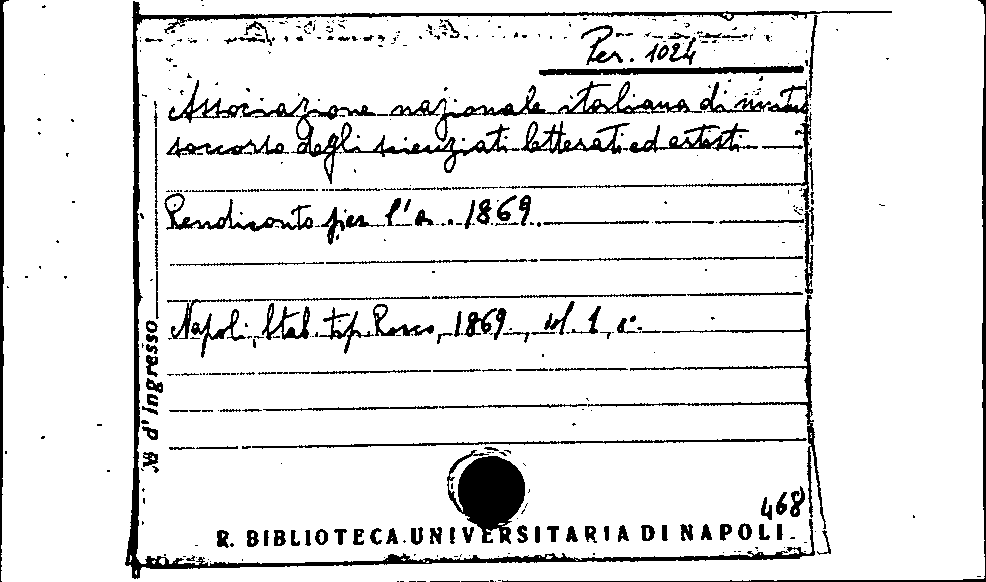 Per. 1024
Associazione nazionale italiana di mutuo
soccorso degli scienziati letterati ed artisti
Rendiconto per l'a. 1869.
Napoli, Stab. tip. Rocco, 1869, vol. 1, 8°.
No d'ingresso
468
R. BIBLIOTECA UNIVERSITARIA DI NAPOLI